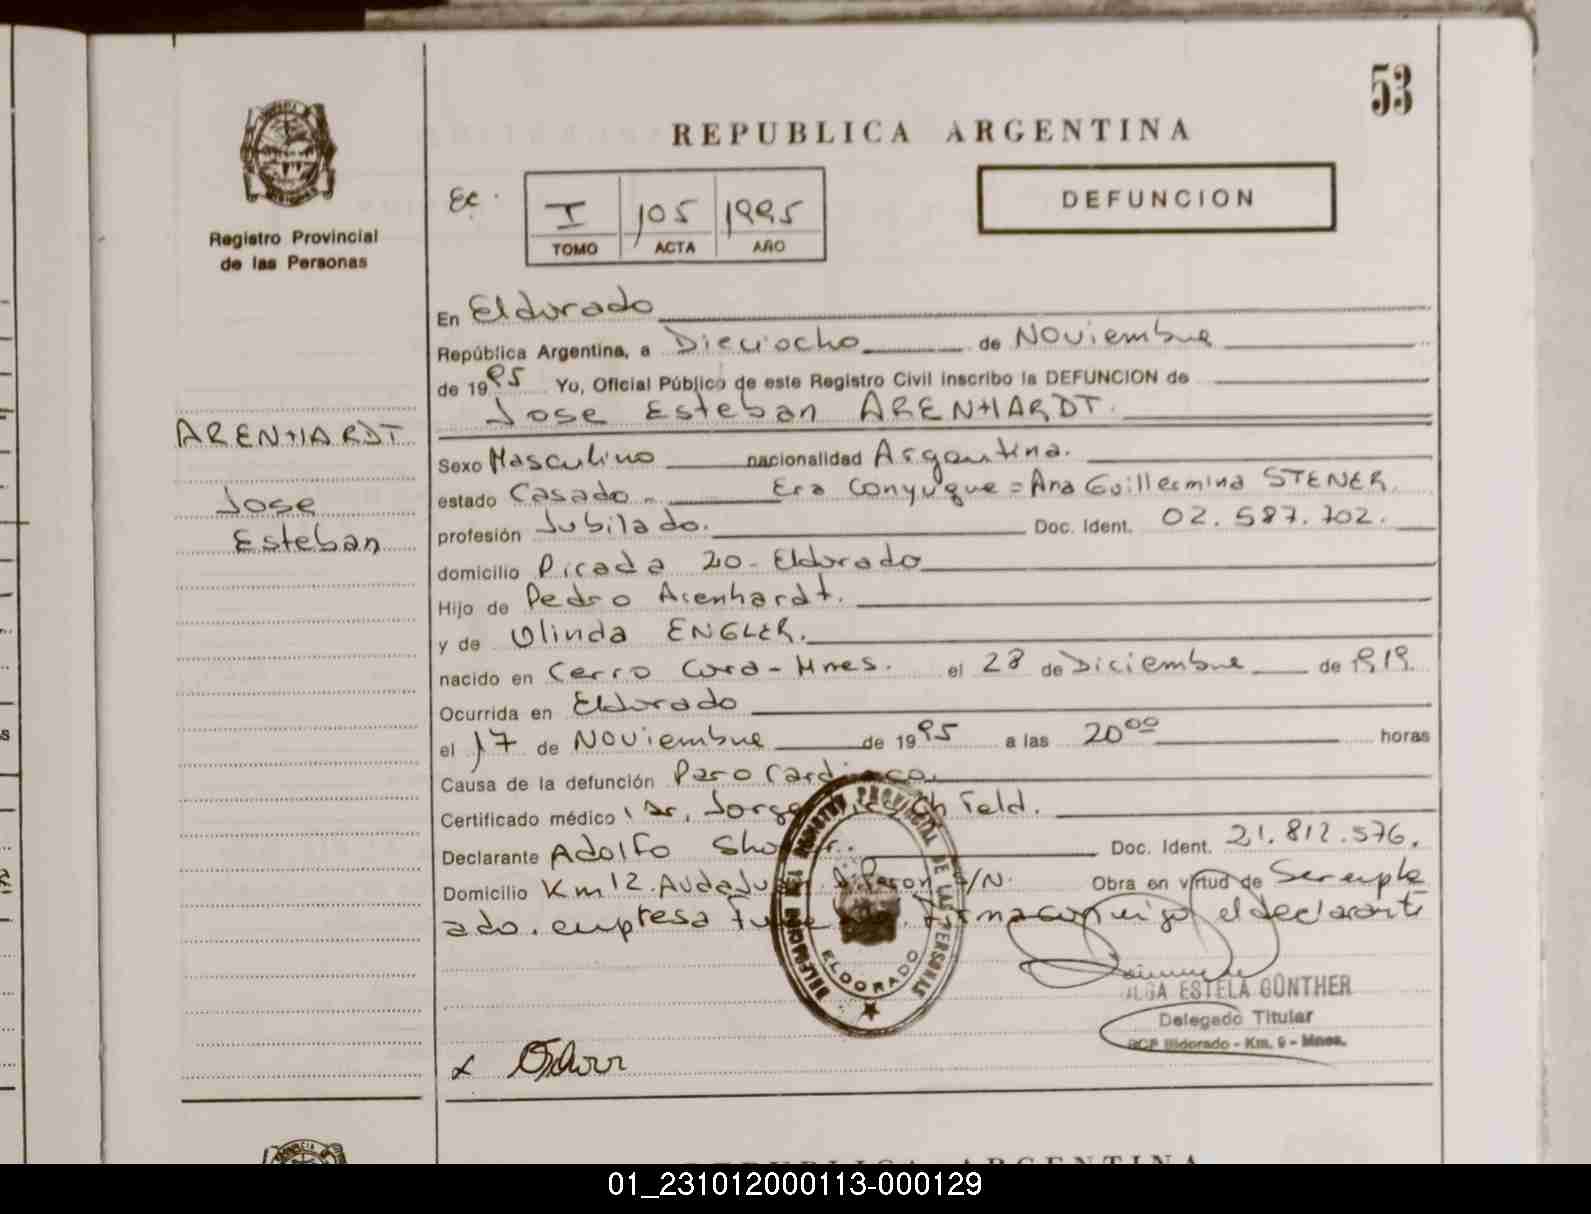 53
REPUBLICA ARGENTINA
Registro Provincial
de las Personas
Ec.
I 105 1995
TOMO ACTA AÑO
DEFUNCION
En Eldorado
República Argentina, a Dieciocho de Noviembre
de 1995 Yo, Oficial Público de este Registro Civil inscribo la DEFUNCION de
Jose Esteban ARENHARDT.
ARENHARDT
Jose
Esteban
Sexo Masculino nacionalidad Argentina.
estado Casado - Era Conyugue = Ana Guillermina STENER.
profesión Jubilado. Doc. Ident. 02.587.702.
domicilio Picada 20 - Eldorado
Hijo de Pedro Arenhardt.
y de Olinda ENGLER.
nacido en Cerro Cora - Mnes. el 28 de Diciembre de 1919.
Ocurrida en Eldorado
el 17 de Noviembre de 1995 a las 20 00 horas
Causa de la defunción Paro Cardiaco.
Certificado médico Dr. Jorge feld.
Declarante Adolfo Doc. Ident. 21.812.576.
Domicilio Km 12. S/N. Obra en virtud de Ser emple
ado. empresa Firma conmigo el declarante
DELEGACION REGISTRO PROVINCIAL DE LAS PERSONAS
ELDORADO
OLGA ESTELA GÜNTHER
Delegado Titular
RCP Eldorado - Km. 9 - Mnes.
x
REPUBLICA ARGENTINA
01_231012000113-000129